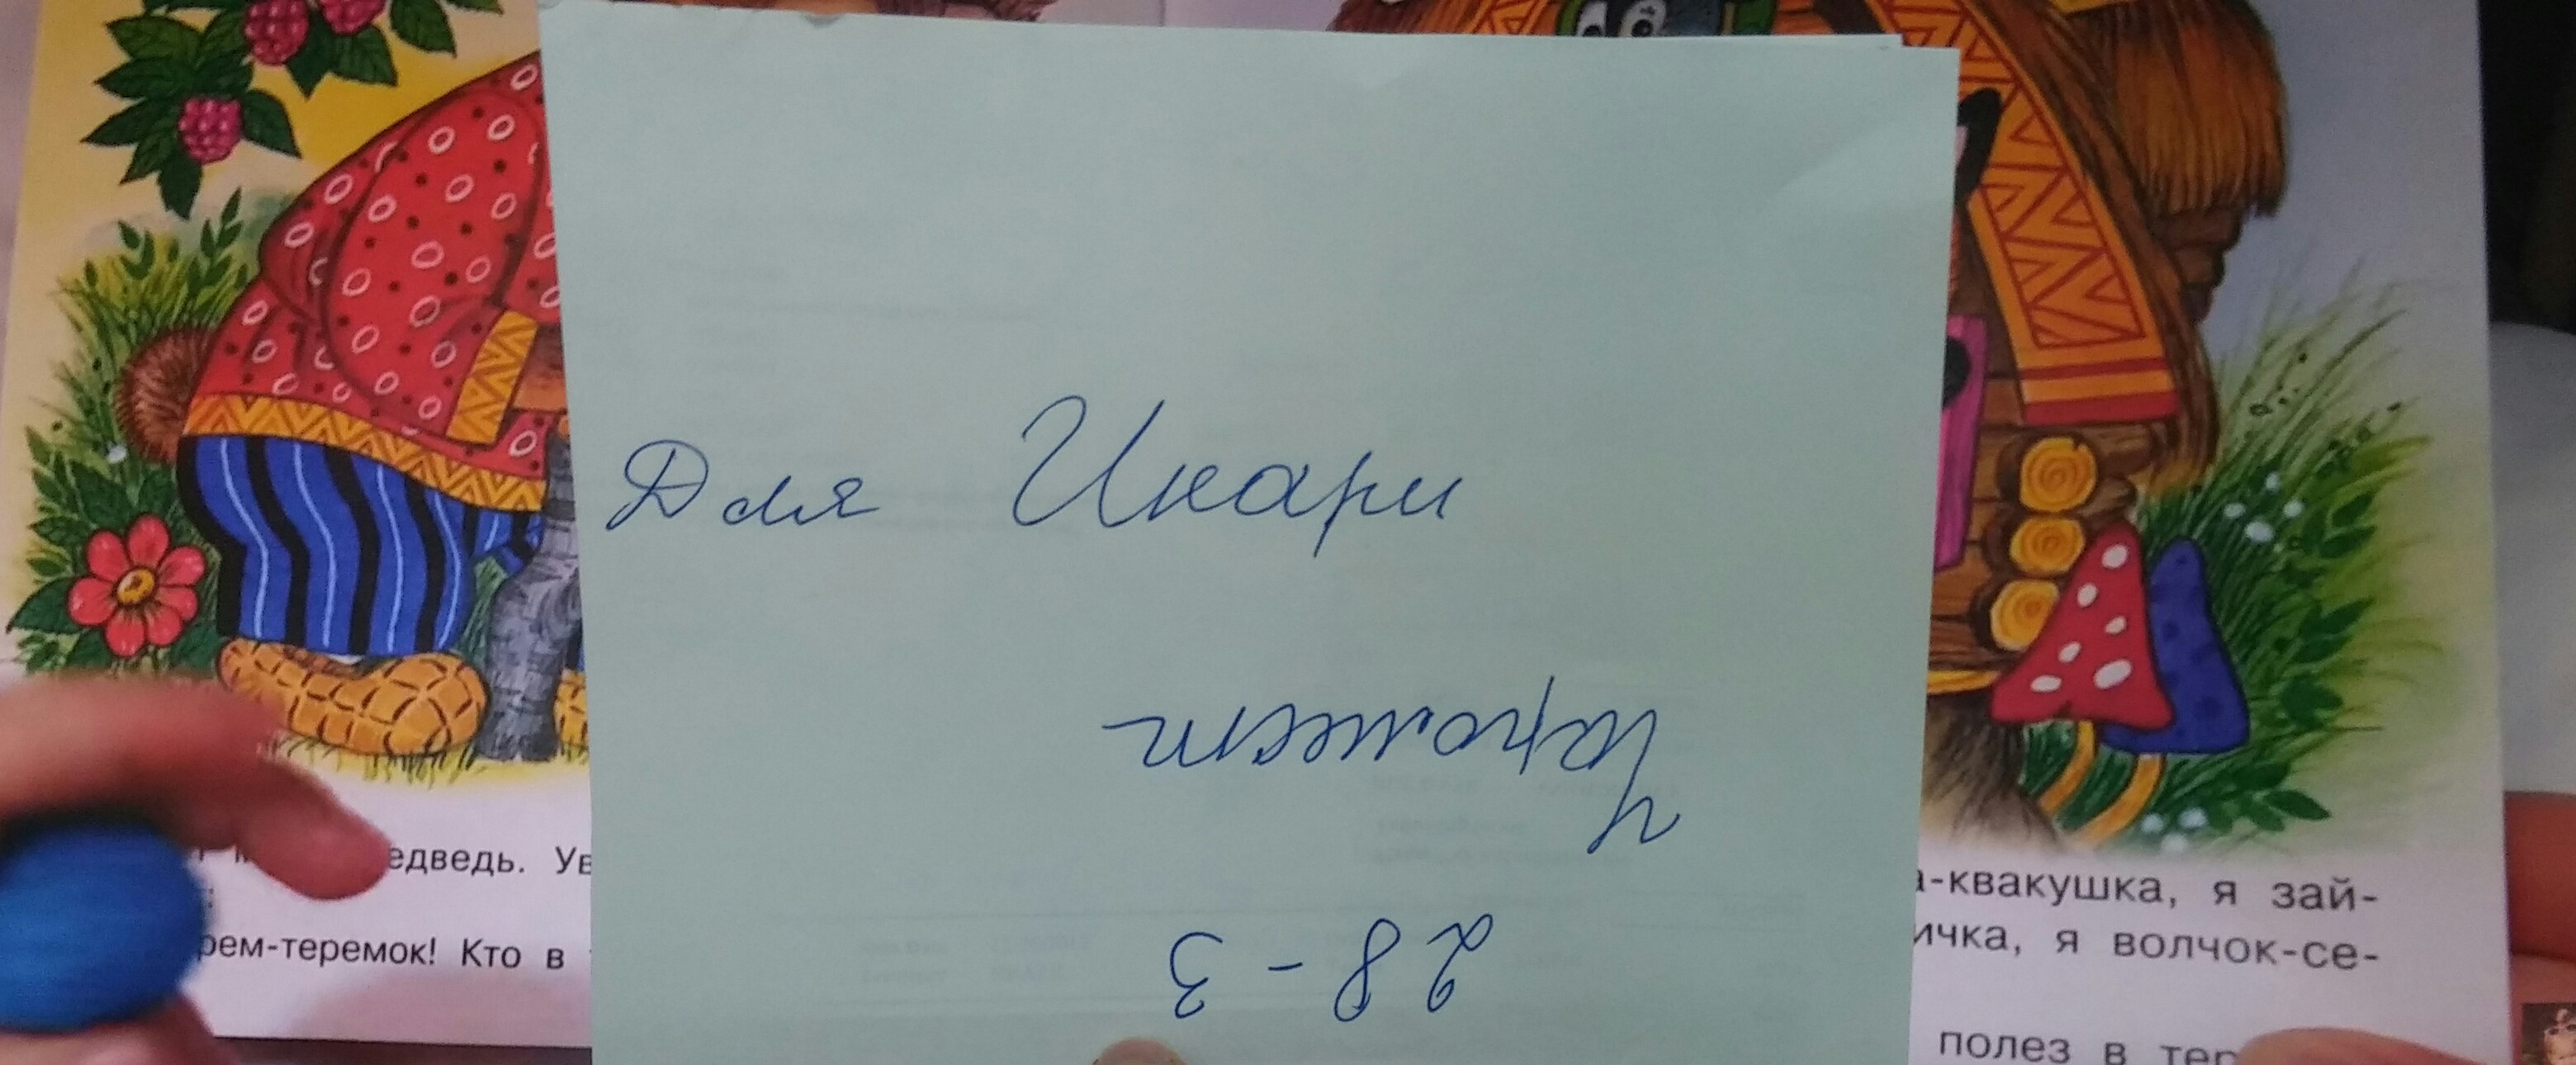 Для Икари
28-3
едведь. Ув
рем-теремок! Кто в
а-квакушка, я зай-
ичка, я волчок-се-
полез в тер